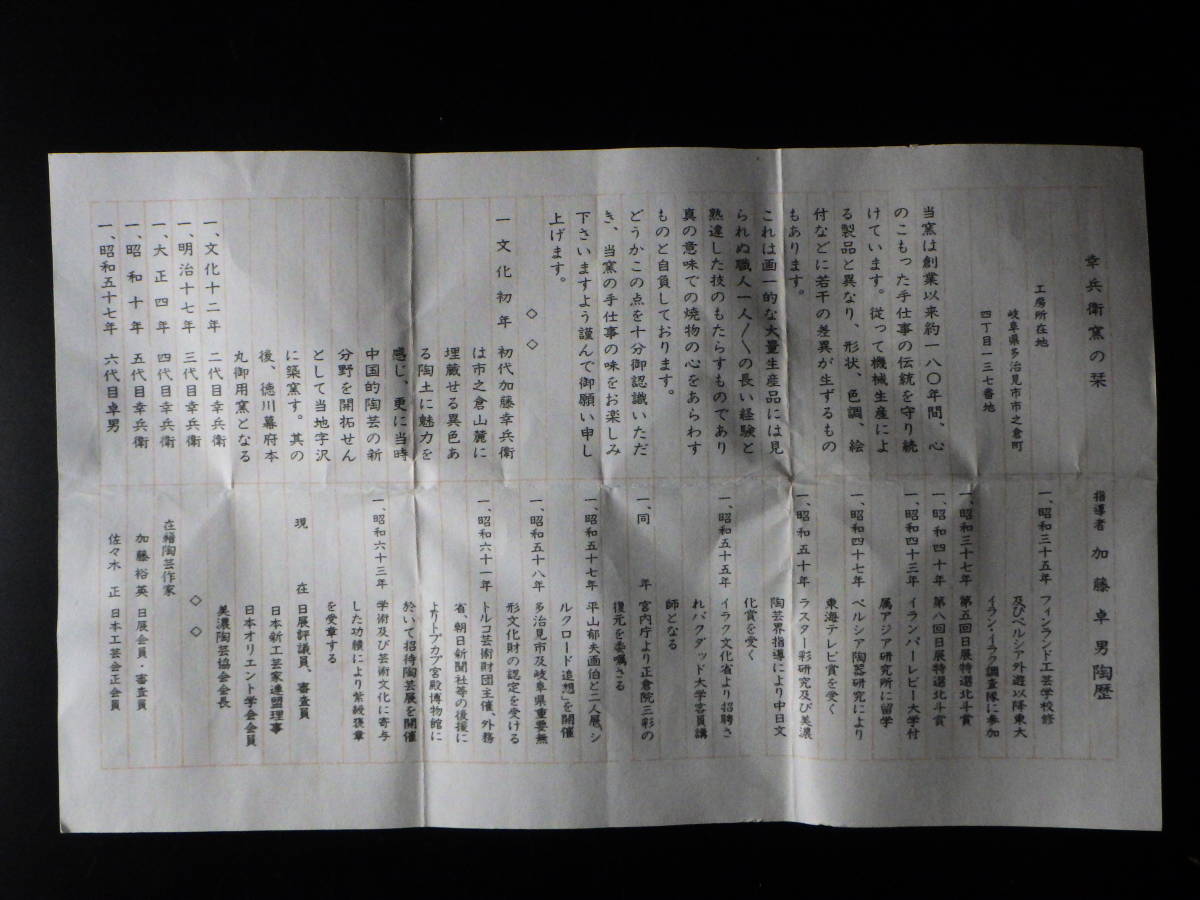 幸兵衛窯の栞
工房所在地
岐阜県多治見市市之倉町
四丁目一三七番地
当窯は創業以来約一八〇年間、心
のこもった手仕事の伝統を守り続
けています。従って機械生産によ
る製品と異なり、形状、色調、絵
付などに若干の差異が生ずるもの
もあります。
これは画一的な大量生産品には見
られぬ職人一人〳〵の長い経験と
熟達した技のもたらすものであり
真の意味での焼物の心をあらわす
ものと自負しております。
どうかこの点を十分御認識いただ
き、当窯の手仕事の味をお楽しみ
下さいますよう謹んで御願い申し
上げます。
◇ ◇
一 文化初年 初代加藤幸兵衛
は市之倉山麓に
埋蔵せる異色あ
る陶土に魅力を
感じ、更に当時
中国的陶芸の新
分野を開拓せん
として当地字沢
に築窯す。其の
後、徳川幕府本
丸御用窯となる
一、文化十二年 二代目幸兵衛
一、明治十七年 三代目幸兵衛
一、大正四年 四代目幸兵衛
一、昭和十年 五代目幸兵衛
一、昭和五十七年 六代目卓男
指導者 加藤卓男陶歴
一、昭和三十五年 フィンランド工芸学校修
及びペルシア外遊以降東大
イラン・イラク調査隊に参加
一、昭和三十七年 第五回日展特選北斗賞
一、昭和四十年 第八回日展特選北斗賞
一、昭和四十三年 イランパーレビー大学付
属アジア研究所に留学
一、昭和四十七年 ペルシア陶器研究により
東海テレビ賞を受く
一、昭和五十年 ラスター彩研究及び美濃
陶芸界指導により中日文
化賞を受く
一、昭和五十五年 イラク文化省より招聘さ
れバクダッド大学客員講
師となる
一、同 年 宮内庁より正倉院三彩の
復元を委嘱さる
一、昭和五十七年 平山郁夫画伯と二人展、「シ
ルクロード追想」を開催
一、昭和五十八年 多治見市及岐阜県重要無
形文化財の認定を受ける
一、昭和六十一年 トルコ芸術財団主催、外務
省、朝日新聞社等の後援に
よりトプカプ宮殿博物館に
於いて招待陶芸展を開催
一、昭和六十三年 学術及び芸術文化に寄与
した功績により紫綬褒章
を受章する
現 在 日展評議員、審査員
日本新工芸家連盟理事
日本オリエント学会会員
美濃陶芸協会会長
◇ ◇
在籍陶芸作家
加藤裕英 日展会員・審査員
佐々木 正 日本工芸会正会員